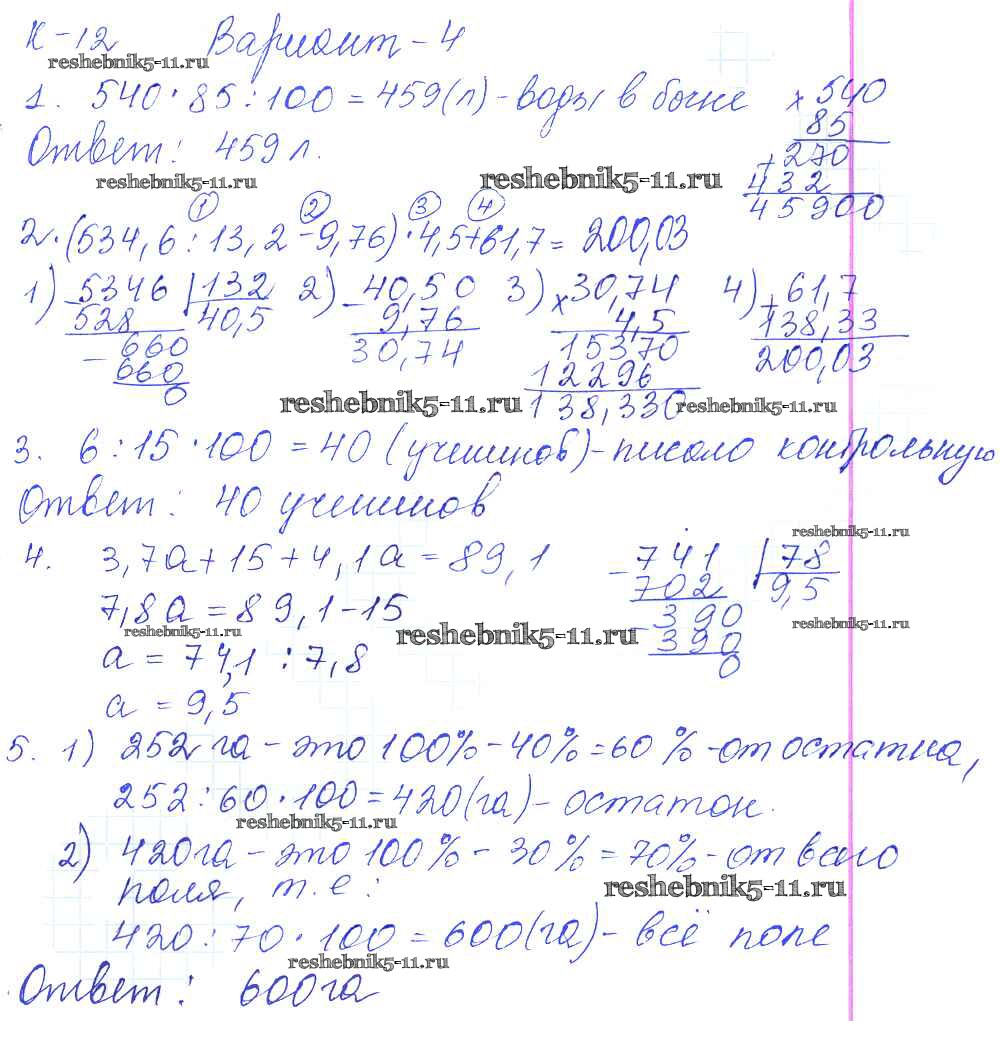 К-12 Вариант-4
reshebnik5-11.ru
1. 540·85:100=459(л)-воды в бочке
×540
85
Ответ: 459 л.
+270
432
45900
reshebnik5-11.ru reshebnik5-11.ru
1 2 3 4
2. (534,6:13,2-9,76)·4,5+61,7=200,03
1) 5346 132
528 40,5
-660
660
0
2) -40,50
9,76
30,74
3) ×30,74
4,5
15370
12296
138,330
4) +61,7
138,33
200,03
reshebnik5-11.ru reshebnik5-11.ru
3. 6:15·100=40 (учеников)-писало контрольную
Ответ: 40 учеников
reshebnik5-11.ru
4. 3,7а+15+4,1а=89,1
7,8а=89,1-15
reshebnik5-11.ru reshebnik5-11.ru reshebnik5-11.ru
а=74,1:7,8
а=9,5
-741 78
702 9,5
-390
390
0
5. 1) 252 га-это 100%-40%=60%-от остатка,
252:60·100=420(га)-остаток.
reshebnik5-11.ru
2) 420га-это 100%-30%=70%-от всего
поля, т.е:
reshebnik5-11.ru
420:70·100=600(га)-всё поле
reshebnik5-11.ru
Ответ: 600га